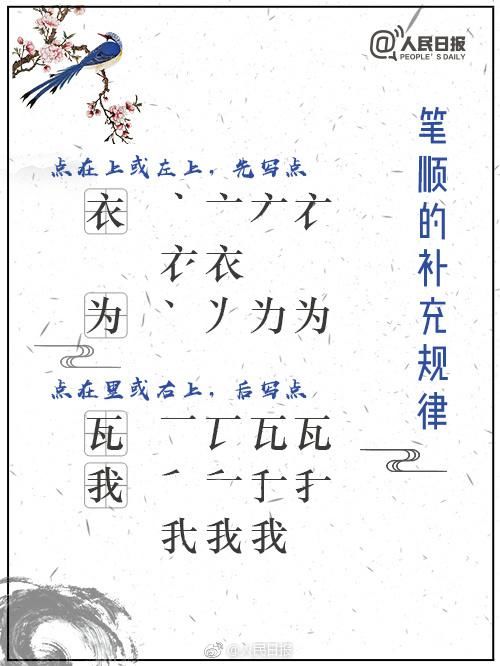 @人民日报
PEOPLE'S DAILY
笔顺的补充规律
点在上或左上，先写点
衣 丶 亠
衣
为 丶 为
点在里或右上，后写点
瓦 一 瓦
我 丿
我
@人民日报